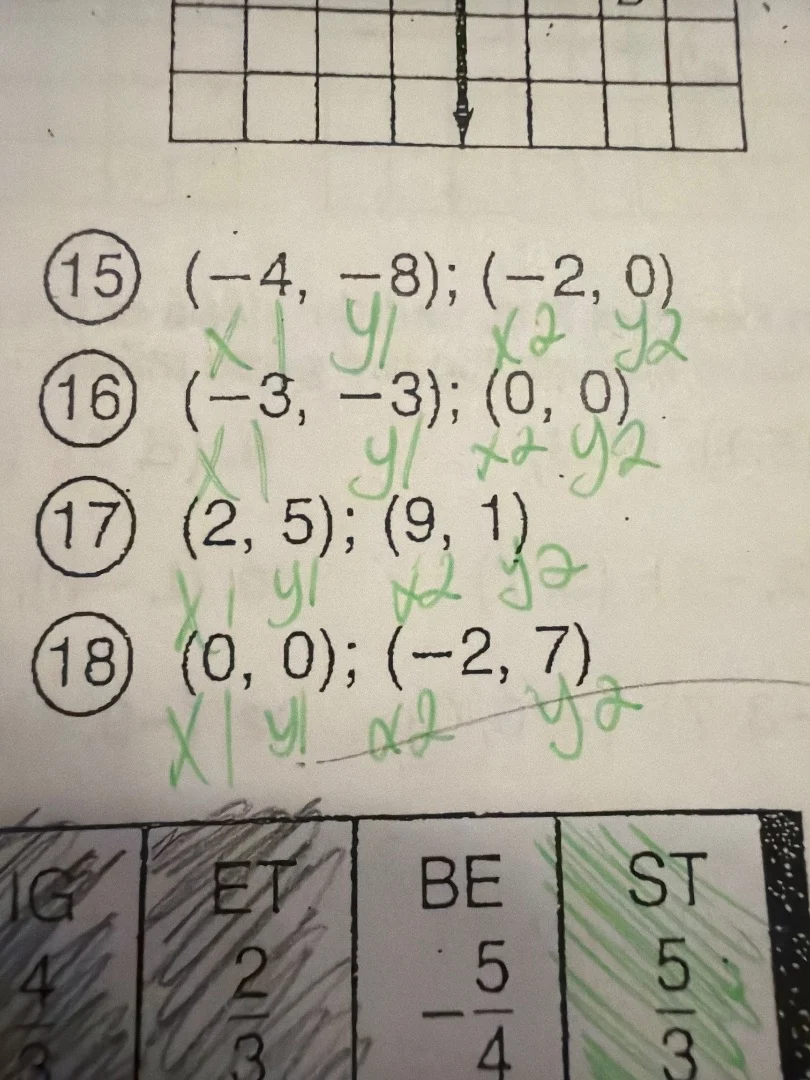 15 (−4, −8); (−2, 0)
x1 y1 x2 y2
16 (−3, −3); (0, 0)
x1 y1 x2 y2
17 (2, 5); (9, 1)
x1 y1 x2 y2
18 (0, 0); (−2, 7)
x1 y1 x2 y2
IG ET BE ST
4 2 5 5
3 3 −4 3